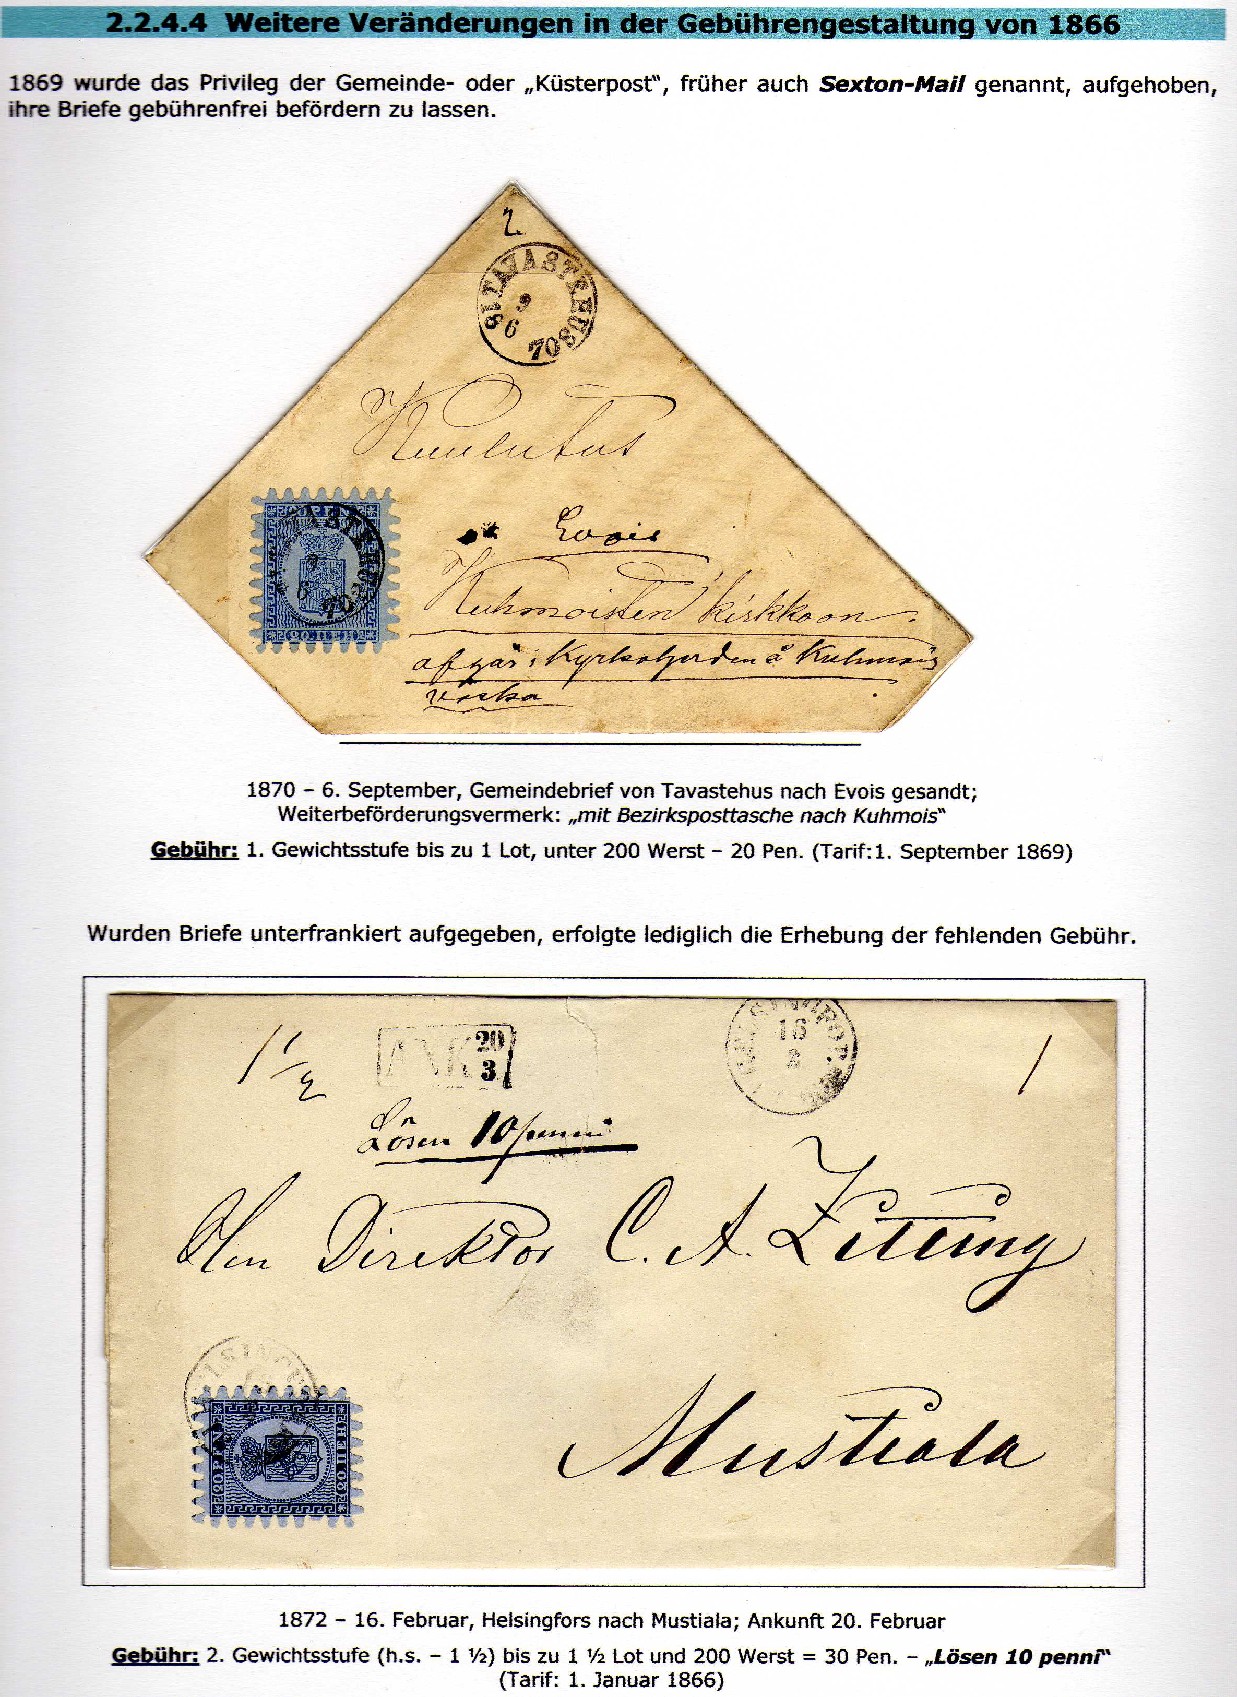 2.2.4.4 Weitere Veränderungen in der Gebührengestaltung von 1866
1869 wurde das Privileg der Gemeinde- oder „Küsterpost“, früher auch Sexton-Mail genannt, aufgehoben,
ihre Briefe gebührenfrei befördern zu lassen.
2
TAVASTEHUS
9
6
70
20 PEN
70
20. ПЕН
Evois
Kuhmoisten kirkkoon.
afgår i Kyrkohjorden à Kuhmois
väska
1870 – 6. September, Gemeindebrief von Tavastehus nach Evois gesandt;
Weiterbeförderungsvermerk: „mit Bezirksposttasche nach Kuhmois“
Gebühr: 1. Gewichtsstufe bis zu 1 Lot, unter 200 Werst – 20 Pen. (Tarif:1. September 1869)
Wurden Briefe unterfrankiert aufgegeben, erfolgte lediglich die Erhebung der fehlenden Gebühr.
1 1/2
ANK 20
3
HELSINGFORS
16
1
Lösen 10 penni
Direktor C. A. Zitting
20 PEN
20. ПЕН
Mustiala
1872 – 16. Februar, Helsingfors nach Mustiala; Ankunft 20. Februar
Gebühr: 2. Gewichtsstufe (h.s. – 1 ½) bis zu 1 ½ Lot und 200 Werst = 30 Pen. – „Lösen 10 penni“
(Tarif: 1. Januar 1866)